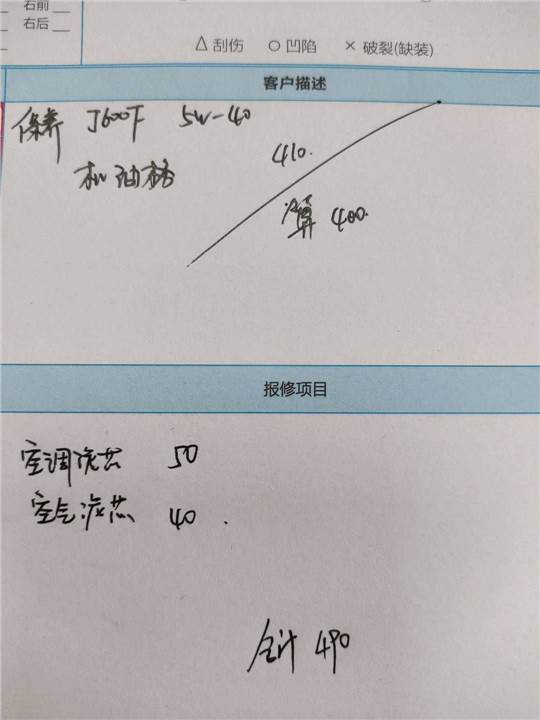 右前
右后
△ 刮伤 ○ 凹陷 × 破裂(缺装)
客户描述
保养 J600F 5W-40
410.
机油格
算 400.
报修项目
空调滤芯 50
空气滤芯 40.
合计 490